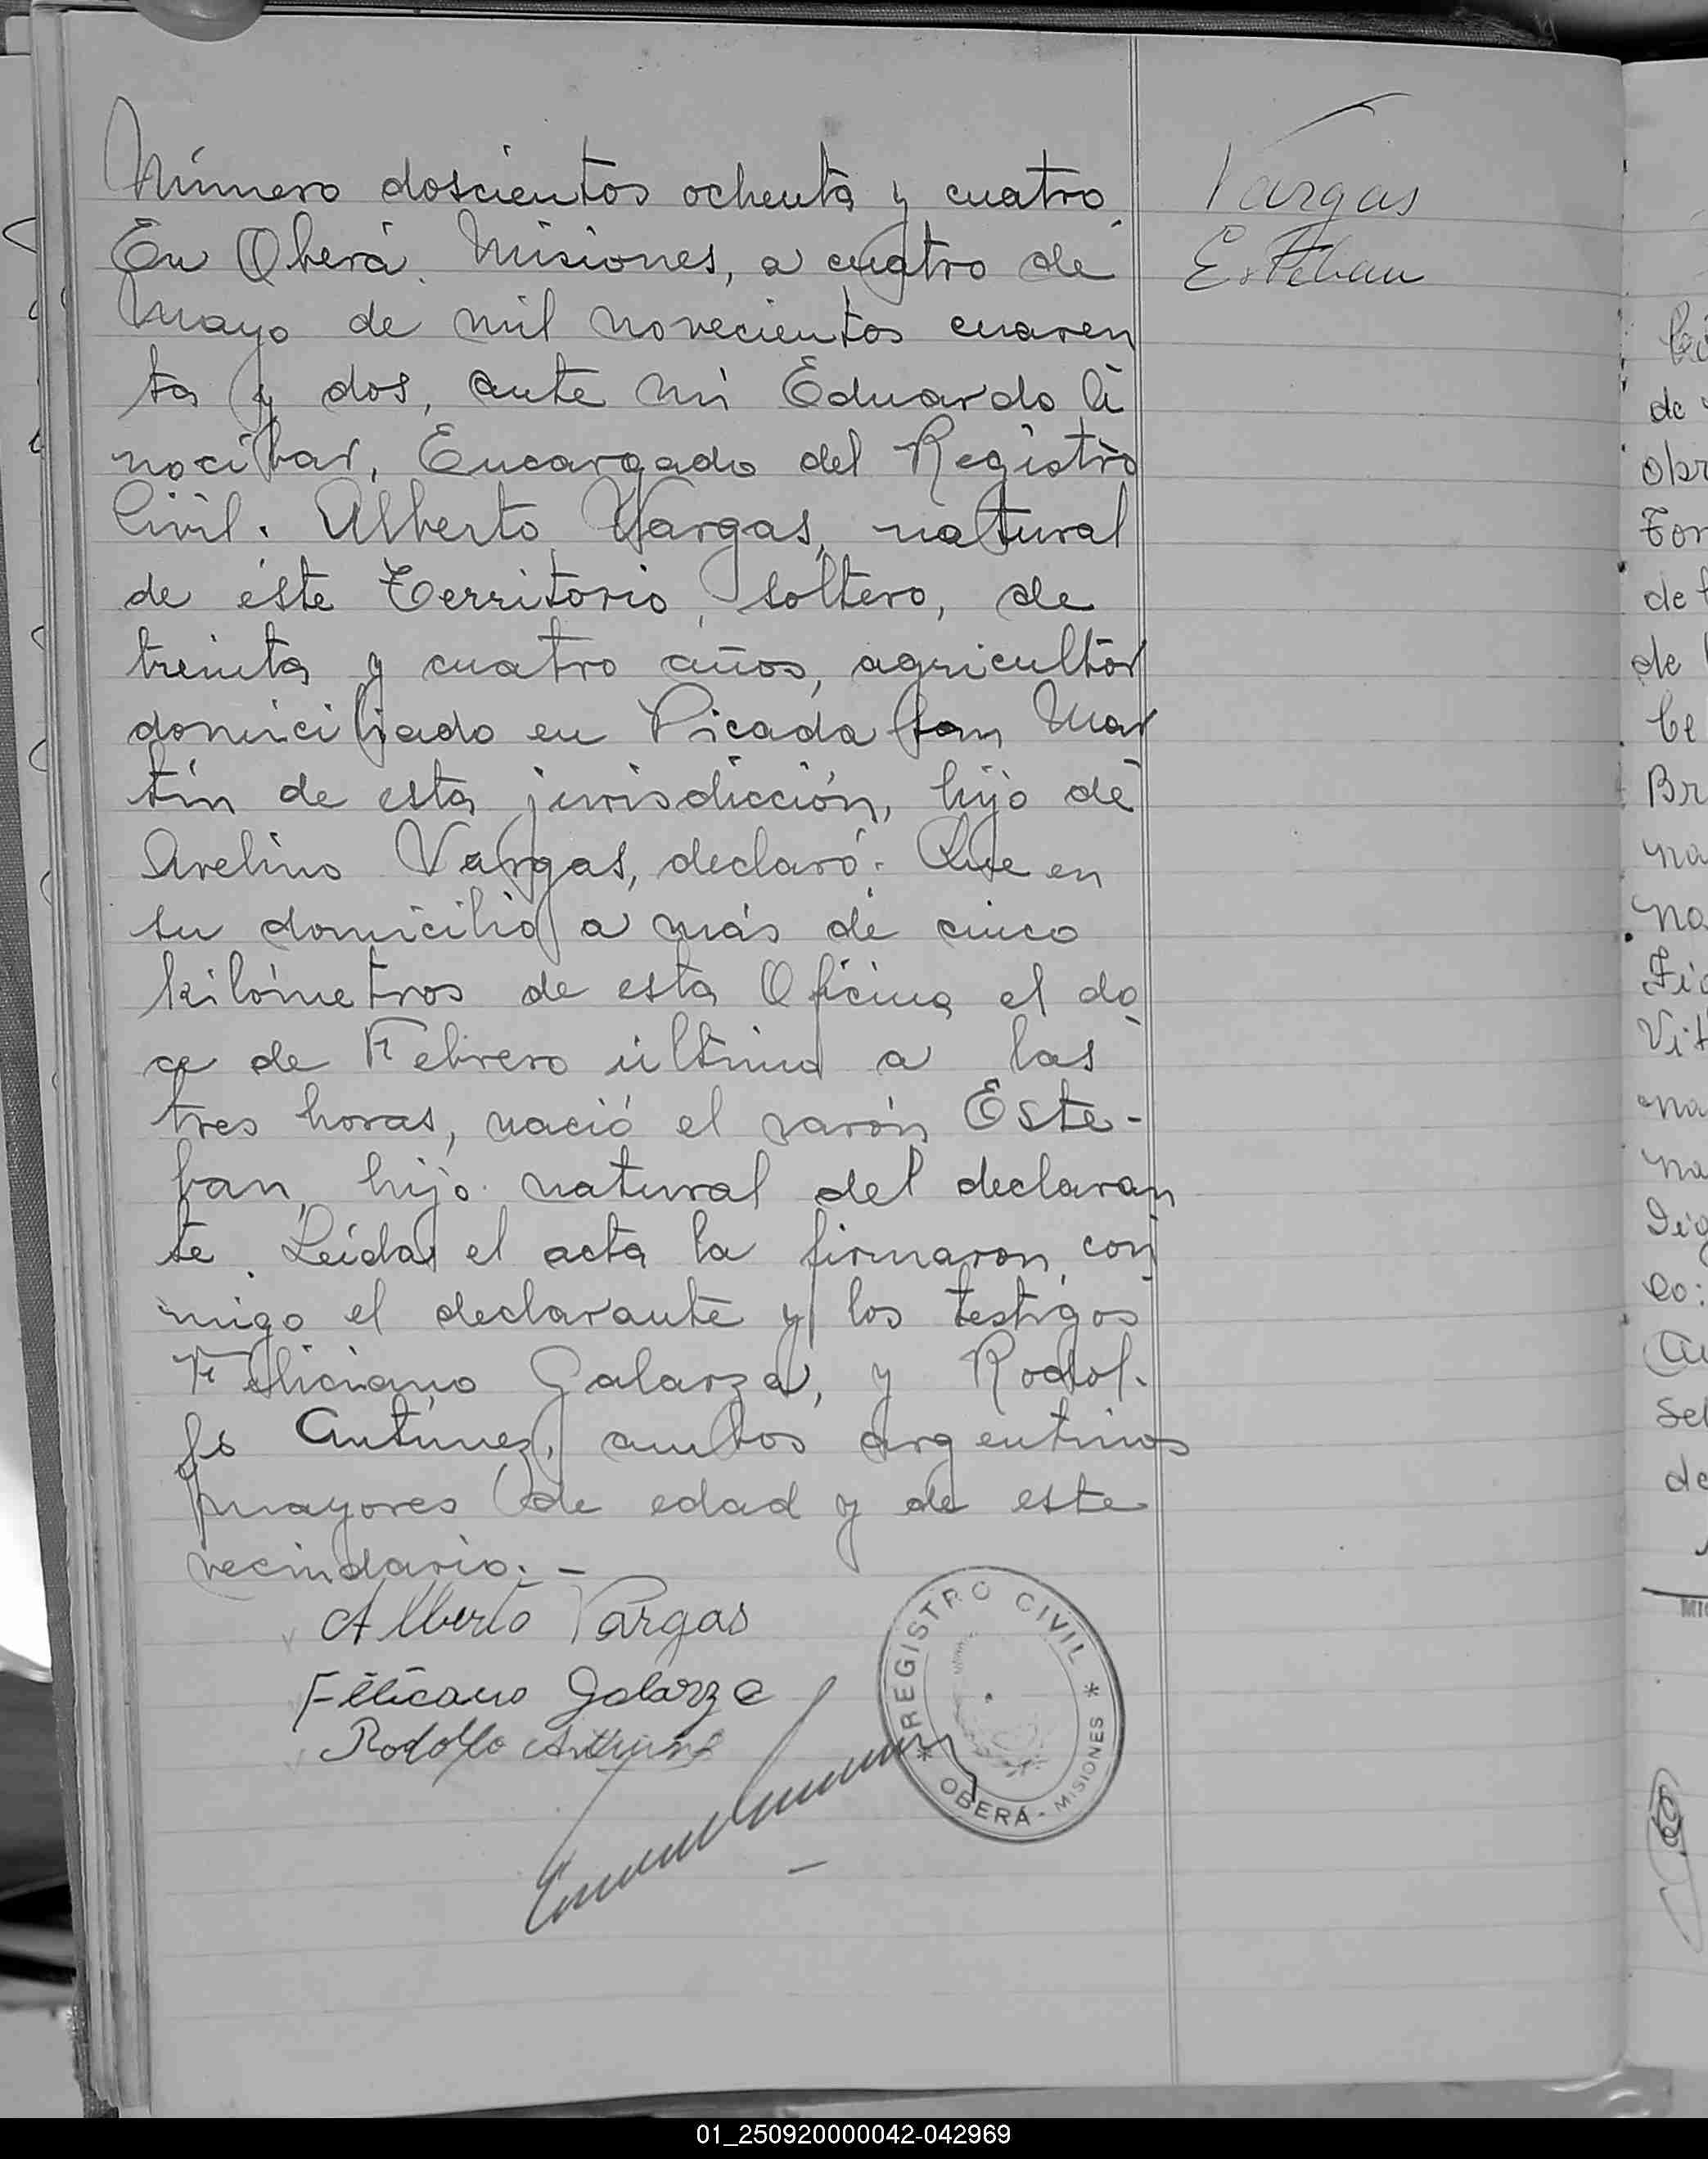 Número doscientos ochenta y cuatro.
En Oberá. Misiones, a cuatro de
Mayo de mil novecientos cuaren
ta y dos, ante mi Eduardo Ci
nocíbar, Encargado del Registro
Civil. Alberto Vargas, natural
de éste Territorio, soltero, de
treinta y cuatro años, agricultor
domiciliado en Picada San Mar
tín de esta jurisdicción, hijo de
Avelino Vargas, declaró: Que en
su domicilio a más de cinco
kilómetros de esta Oficina el do
ce de Febrero último a las
tres horas, nació el varón Este-
ban, hijo natural del declaran
te. Leída el acta la firmaron con
migo el declarante y los testigos
Feliciano Galarza, y Rodol-
fo Antúnez, ambos argentinos
mayores de edad y de este
vecindario. -
Alberto Vargas
Feliciano Galarza
Rodolfo
REGISTRO CIVIL
* OBERÁ - MISIONES *
Vargas
Esteban
de
obr
For
de
de
Ce
Br
na
na
Fic
Vit
na
na
Dig
co:
Sel
de
01_250920000042-042969